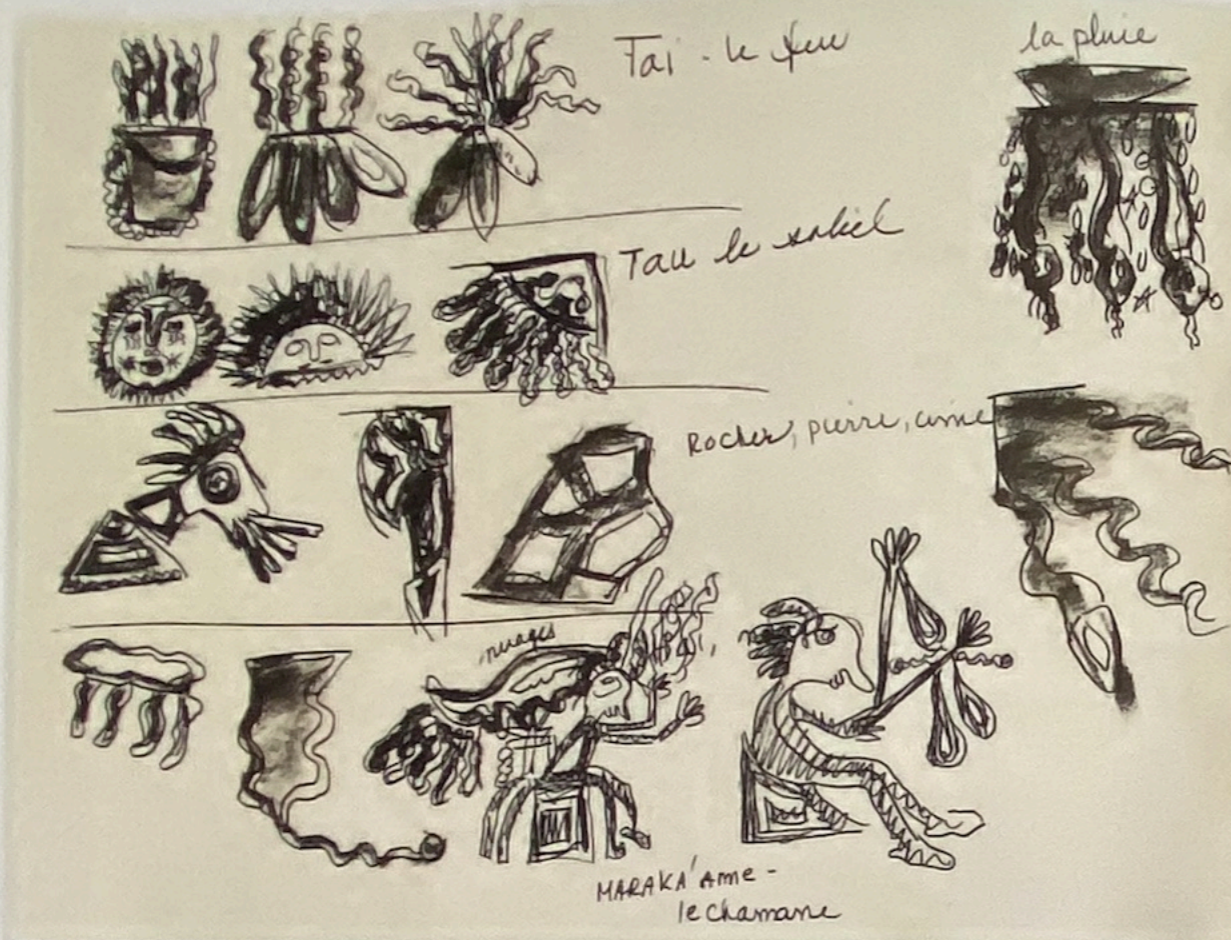 Tai - le feu
la pluie
Tau le soleil
Rocher, pierre, cime
nuages
MARAKA'Ame -
le chamane